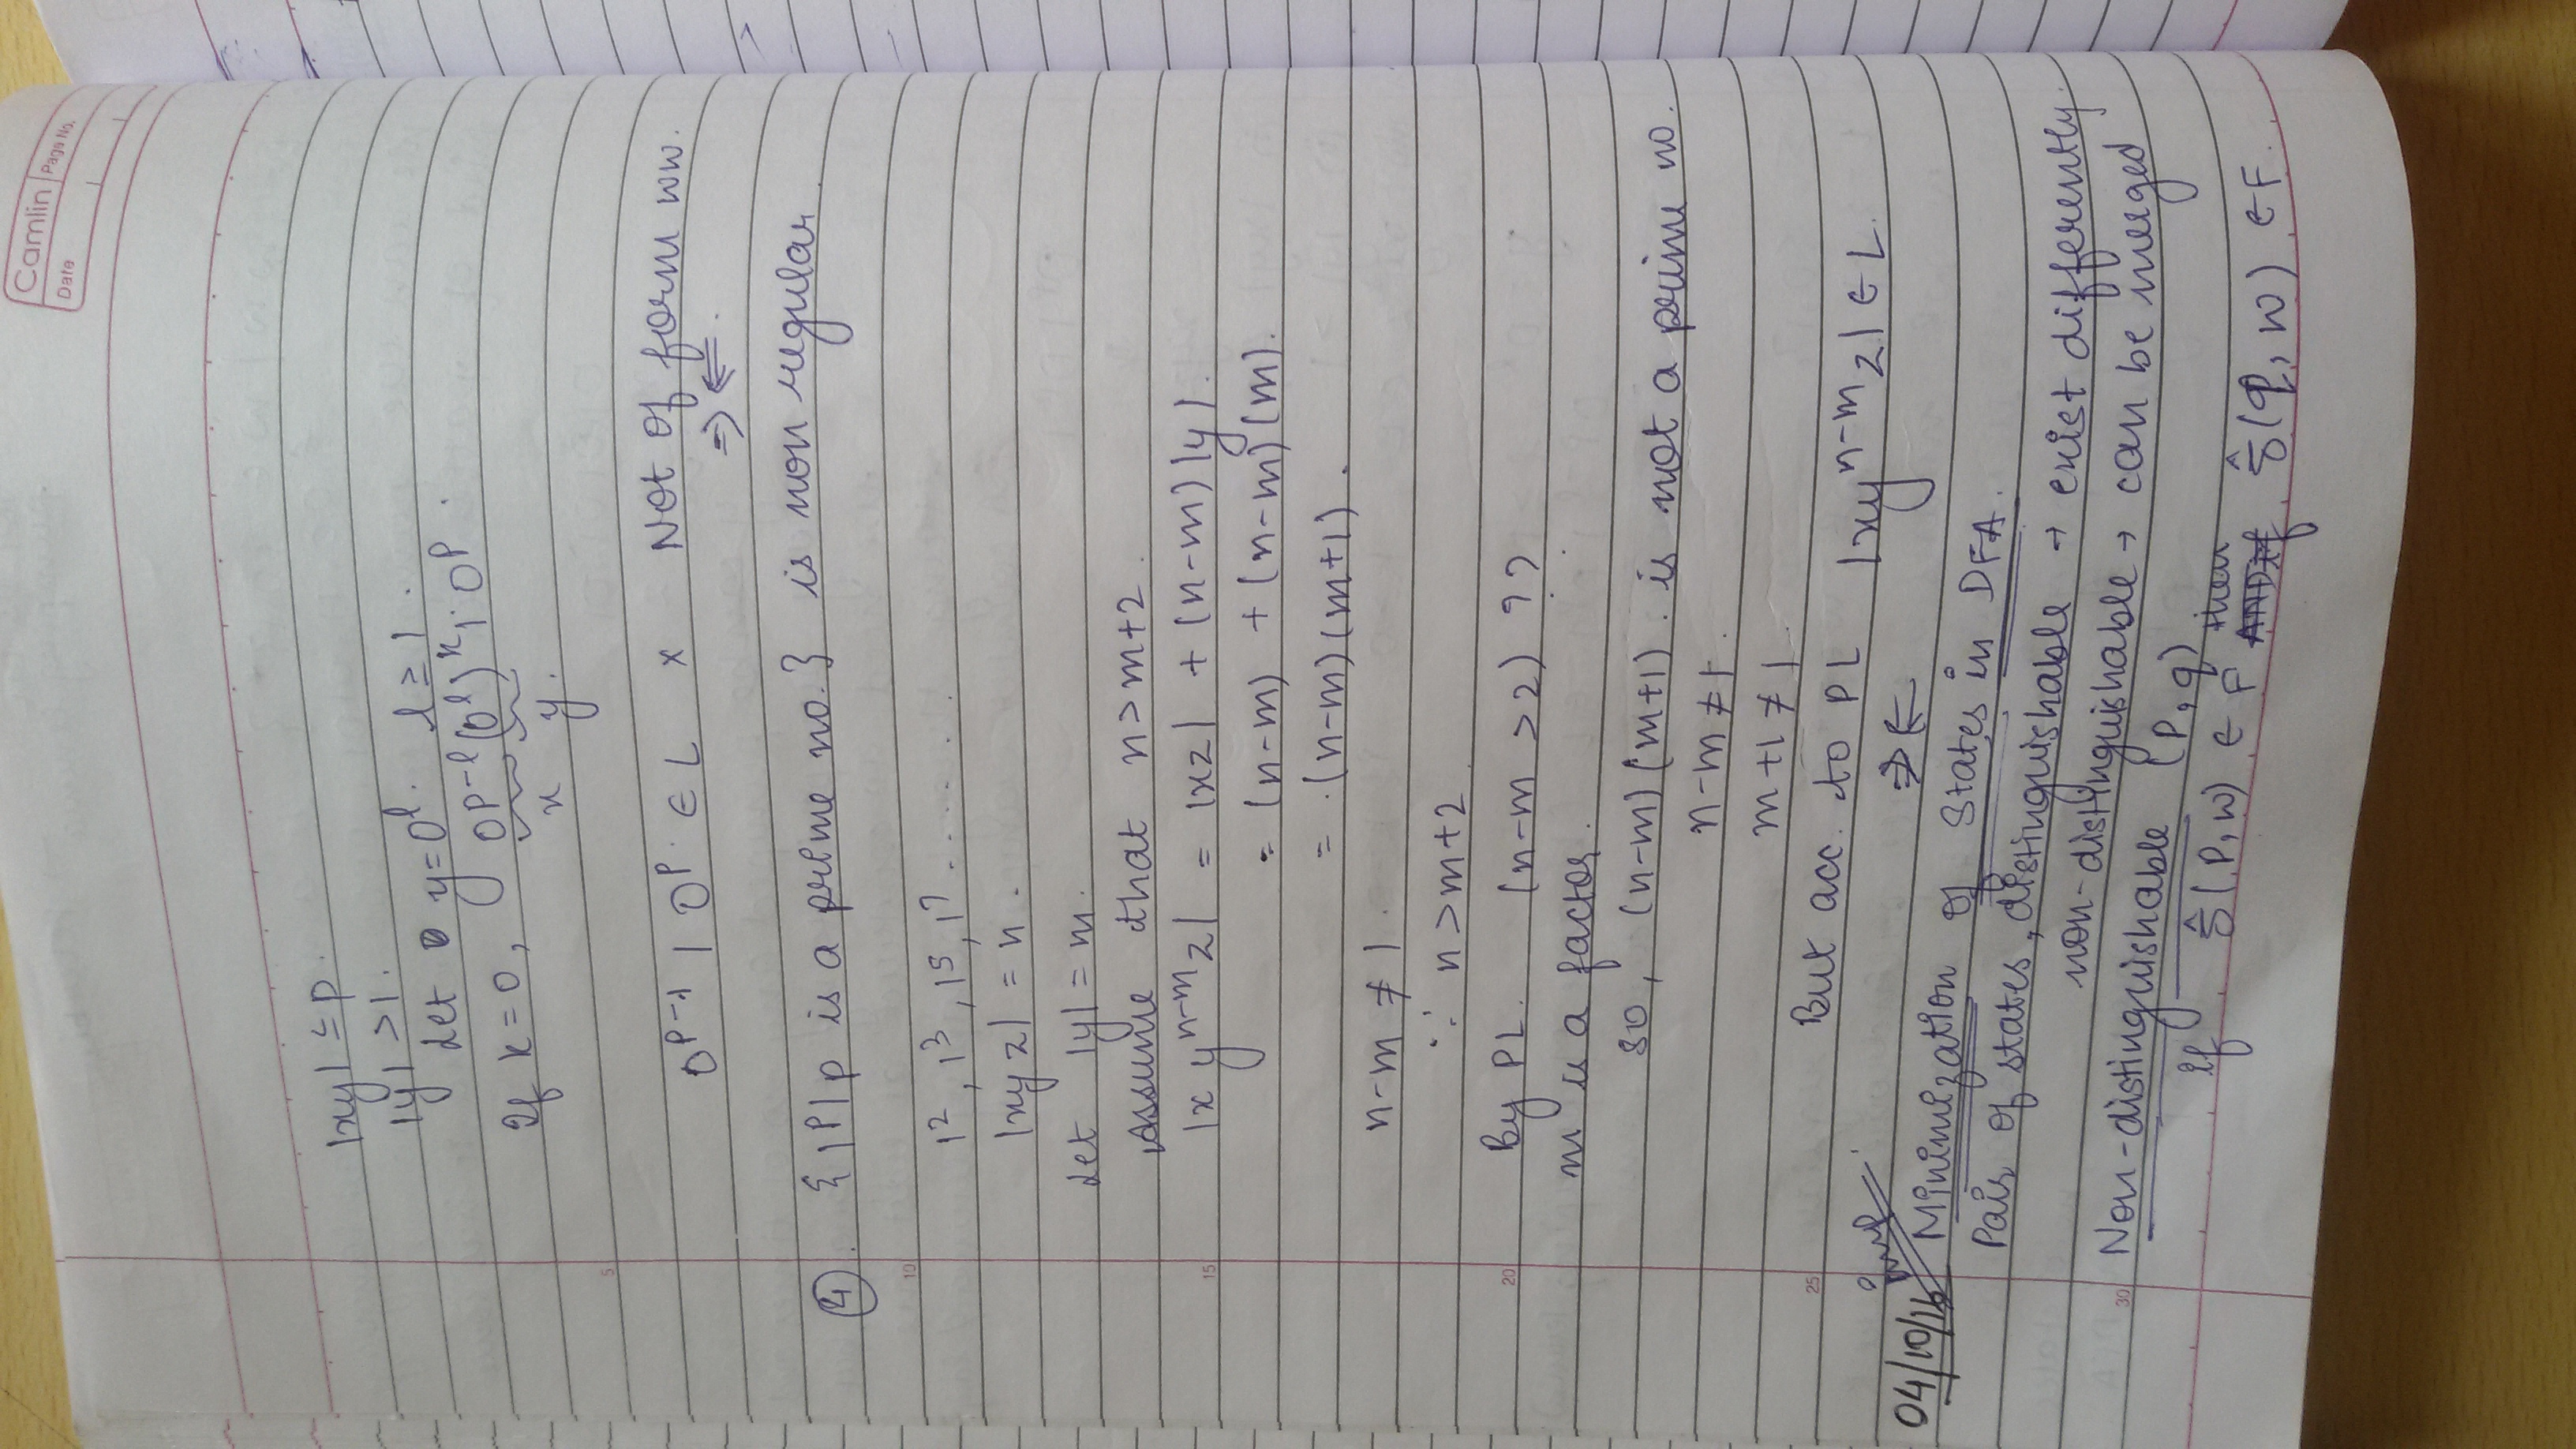 Camlin Page No.
Date / /
|xy| ≤ p.
|y| > 1.
Let y = 0^l. l ≥ 1.
If k = 0, 0^p-l (0^l)^k 1. 0^p.
x y.
5
0^p-1 1 0^p. ∈ L × Not of form ww.
⇒⇐.
④. {1^p | p is a prime no.} is non regular.
10
1^2, 1^3, 1^5, 1^7 .......
|xyz| = n.
Let |y| = m.
Assume that n > m+2.
15 |x y^n-m z| = |xz| + (n-m)|y|.
= (n-m) + (n-m)(m).
= .(n-m)(m+1).
n-m ≠ 1.
∵ n > m+2
20 By PL. (n-m > 2) ??
m is a factor.
so, (n-m)(m+1). is not a prime no.
n-m ≠ 1.
m+1 ≠ 1.
25 But acc. to PL |xy^n-m z| ∈ L.
⇒⇐
imp
04/10/16 Minimization of States in DFA.
Pair of states, distinguishable → exist differently.
non-distinguishable → can be merged
30 Non-distinguishable (P, q)
if δ̂(P, w) ∈ F then δ̂(q, w) ∈ F.